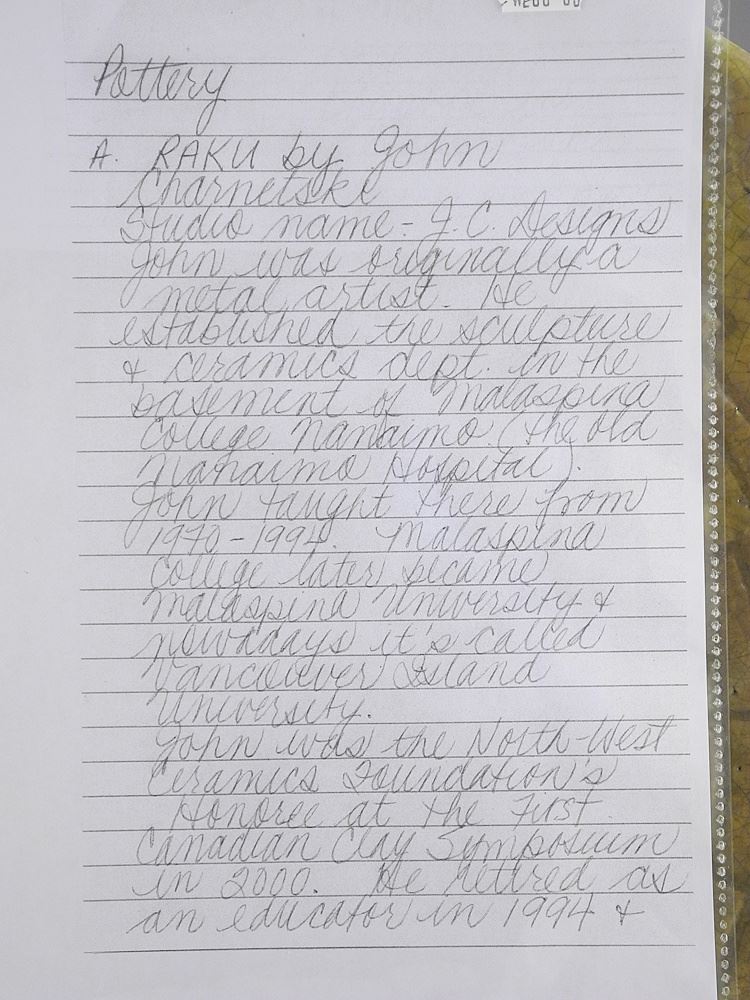 Pottery
A. RAKU by John
Charnetski
Studio name - J.C. Designs
John was originally a
metal artist. He
established the sculpture
& ceramics dept. in the
basement of Malaspina
College Nanaimo (the old
Nanaimo Hospital).
John taught there from
1970-1994. Malaspina
College later became
Malaspina University &
nowadays it's called
Vancouver Island
University.
John was the North-West
Ceramics Foundation's
Honoree at the First
Canadian Clay Symposium
in 2000. He retired as
an educator in 1994 &